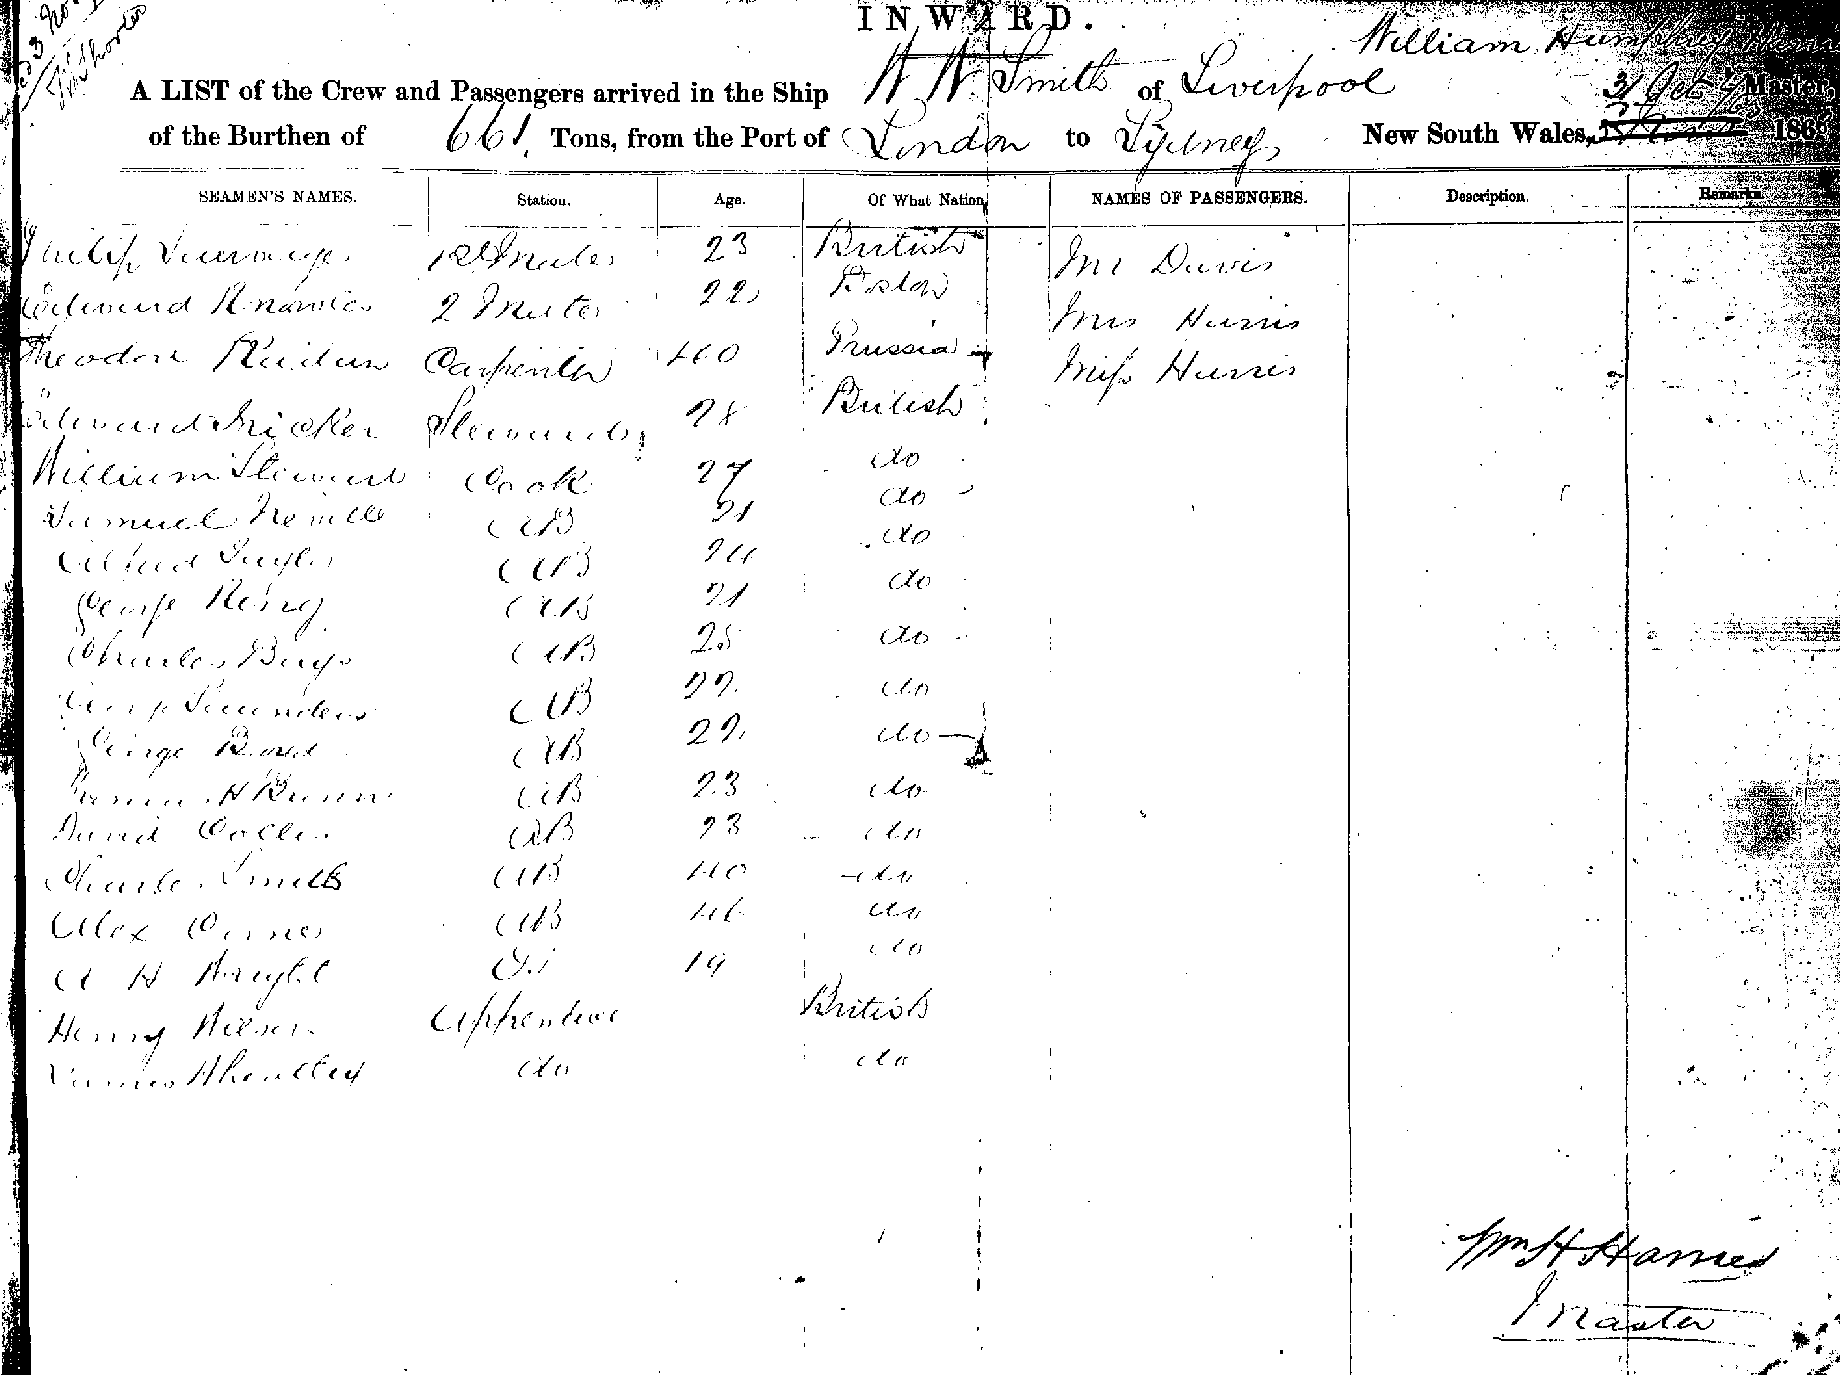 INWARD.
William Humphrey
A LIST of the Crew and Passengers arrived in the Ship W W Smith of Liverpool Master,
of the Burthen of 661 Tons, from the Port of London to Sydney New South Wales, 31 Oct 186
SEAMEN'S NAMES. Station. Age. Of What Nation NAMES OF PASSENGERS. Description. Remarks
Philip 1st Mate 23 British Mr Davis
Edward Knowles 2 Mate 22 Boston Mrs Harris
Theodore Carpenter 40 Prussia Miss Harris
Edward Steward 28 British
William Steward Cook 27 do
Samuel Neville AB 21 do
Alfred Taylor AB 24 do
George King AB 21 do
Charles Bugs AB 25 do
George Saunders AB 22 do
George Bond AB 22 do
H Bunn AB 23 do
David Collins AB 23 do
Charles Smith AB 40 do
Alex AB 46 do
A H Wright OS 19 do
Henry Wilson Apprentice British
James Wheatley do do
Wm H Harries
Master